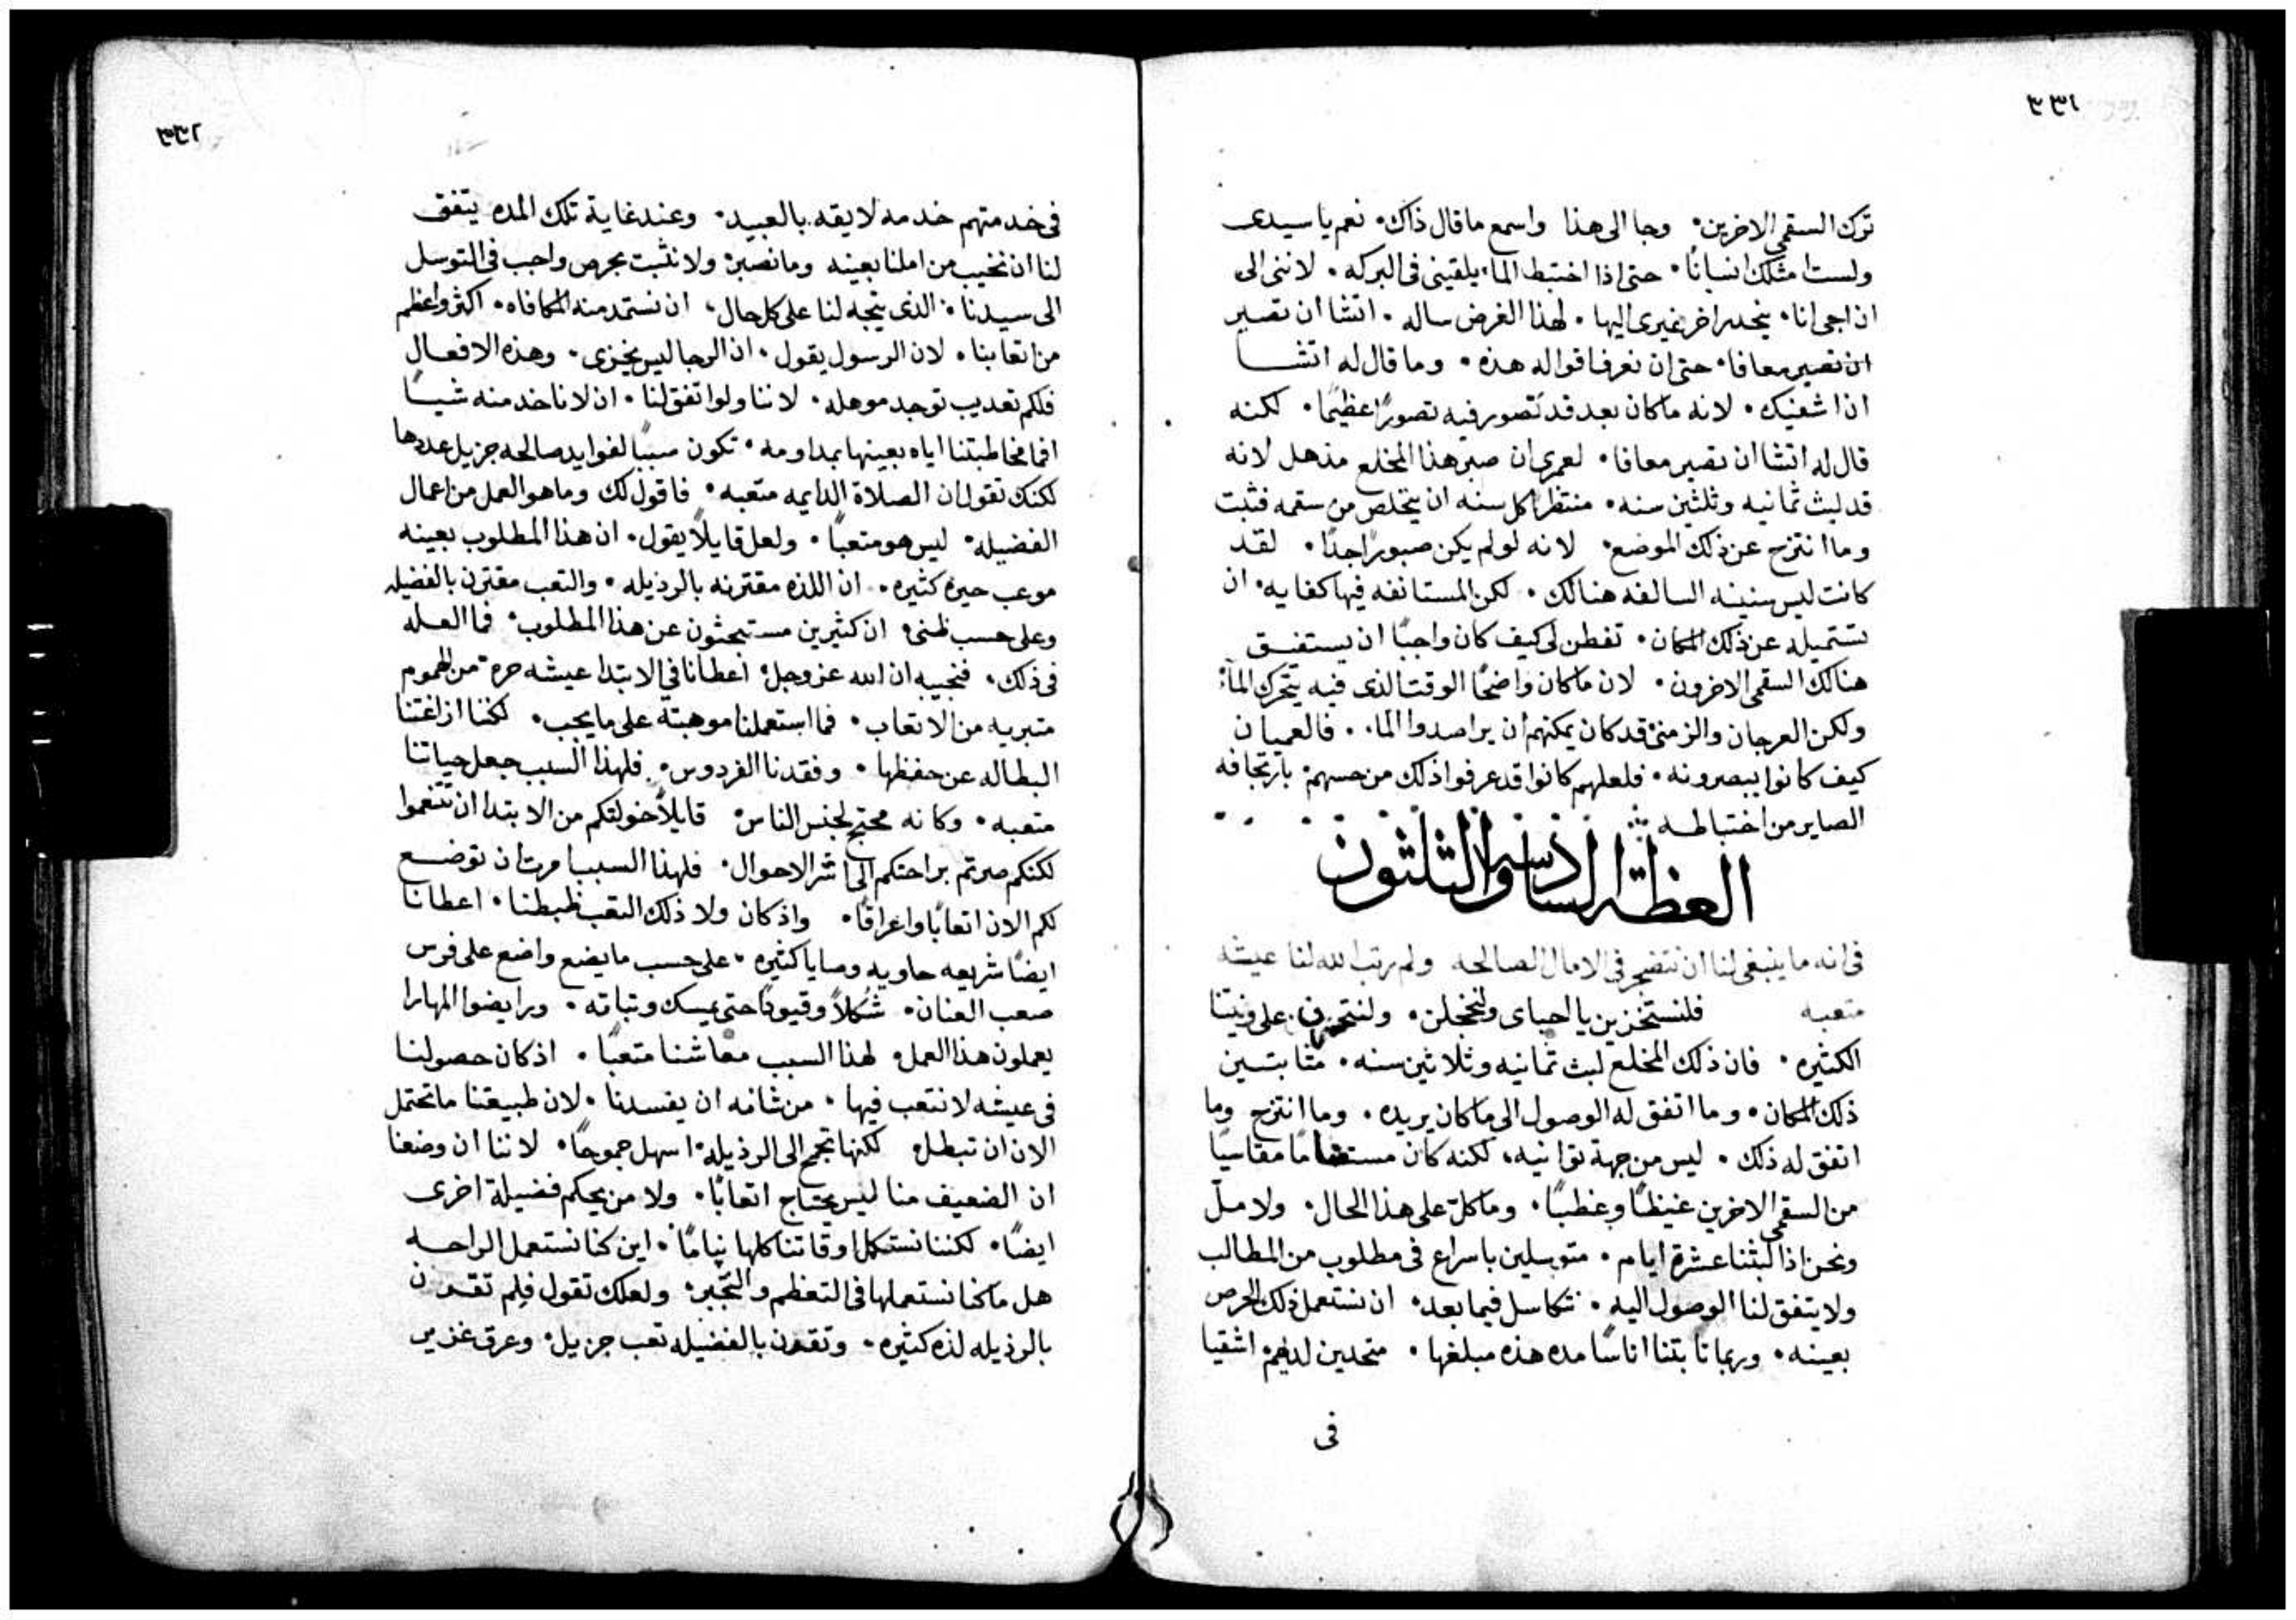 ٣٣١
ترك السقمى الاخرين٠ وجا الى هذا واسمع ما قال ذاك٠ نعم يا سيدى
ولست امثلك انسانًا٠ حتى اذا اختبط الما٠ يلقينى فى البركه٠ لاننى الى
ان اجى انا٠ ينحدر اخر غيرى اليها٠ لهذا الغرض ساله٠ اتشا ان تصير
ان تصير معافا٠ حتى ان نعرف اقواله هذه٠ وما قال له اتشا
ان اشفيك٠ لانه ما كان بعد قد تصور فيه تصورًا عظيمًا٠ لكنه
قال له اتشا ان تصير معافا٠ لعمرى ان صبر هذا المخلع مذهل لانه
قد لبث ثمانيه وثلثين سنه٠ منتظرًا كل سنه ان يتخلص من سقمه فثبت
وما انتزح عن ذلك الموضع٠ لانه لو لم يكن صبورًا جدًا٠ لقد
كانت ليس سنينه السالفه هنالك٠ لكن المستانفه فيها كفايه٠ ان
تستميله عن ذلك المكان٠ تفطن لى كيف كان واجبًا ان يستفيق
هنالك السقمى الاخرون٠ لان ما كان واضحًا الوقت الذى فيه يتحرك المآ٠
ولكن العرجان والزمنى قد كان يمكنهم ان يراصدوا الما٠ فالعميان
كيف كانوا يبصرونه٠ فلعلهم كانوا قد عرفوا ذلك من حسهم٠ بارتجافه
الصاير من اختباطه
العظة السادسه والثلثون
فى انه ما ينبغى لنا ان نتضجر فى الامال الصالحه ولم رتب الله لنا عيشه
متعبه فلنستخزين يا احباى ولنخجلن٠ ولنتحزن على ونيتنا
الكثيره٠ فان ذلك المخلع لبث ثمانيه وثلاثين سنه٠ مثابتين
ذلك المكان٠ وما اتفق له الوصول الى ما كان يريده٠ وما انتزح وما
اتفق له ذلك٠ ليس من جهة توانيه٠ لكنه كان مستضاما مقاسيًا
من السقمى الاخرين غيظًا وغطبًا٠ وما كلّ على هذا الحال٠ ولا ملّ
ونحن اذا لبثنا عشرة ايام٠ متوسلين باسراع فى مطلوب من المطالب
ولا يتفق لنا الوصول اليه٠ نتكاسل فيما بعد٠ ان نستعمل ذلك الحرص
بعينه٠ وربما ثابتنا اناسًا مده هذه مبلغها٠ متجدين لديهم اشقيا
فى
٣٣٢
فى خدمتهم خدمه لايقه بالعبيد٠ وعند غاية تلك المده يتفق
لنا ان نخيب من املنا بعينه وما نصبر٠ ولا نثبت بحرص واجب فى التوسل
الى سيدنا٠ الذى يتجه لنا على كل حال٠ ان نستمد منه المكافاه٠ اكثر واعظم
من اتعابنا٠ لان الرسول يقول٠ ان الرجا ليس يخزى٠ وهذه الافعال
فلكم تعديب توجد موهله٠ لاننا ولو اتفق لنا٠ ان لا ناخد منه شيًا
افما مخاطبتنا اياه بعينها بمداومه٠ تكون سببًا لفوايد صالحه جزيل عددها
لكنك تقول ان الصلاة الدايمه متعبه٠ فاقول لك وما هو العمل من اعمال
الفضيله٠ ليس هو متعبًا٠ ولعل قايلًا يقول٠ ان هذا المطلوب بعينه
موعب حيرة كثيره٠ ان اللذه مقترنه بالرذيله٠ والتعب مقترن بالفضيله
وعلى حسب ظنى٠ ان كثيرين مستبحثون عن هذا المطلوب٠ فما العله
فى ذلك٠ فنجيبه ان الله عز وجل٠ اعطانا فى الابتدا عيشه حره٠ من الهموم
متبريه من الاتعاب٠ فما استعملنا موهبته على ما يجب٠ لكننا ازاغتنا
البطاله عن حفظها٠ وفقدنا الفردوس٠ فلهذا السبب جعل حياتنا
متعبه٠ وكانه محتج لجنس الناس٠ قايلًا خولتكم من الابتدا ان تتنعموا
لكنكم صرتم براحتكم الى اشر الاحوال٠ فلهذا السبب امرت ان توضع
لكم الان اتعابًا واعراقًا٠ واذ كان ولا ذلك التعب ظبطنا٠ اعطانا
ايضًا شريعه حاويه وصايا كثيره٠ على حسب ما يضع واضع على فرس
صعب العنان٠ شُكلًا وقيودًا حتى يمسك وتباته٠ ورايضوا المهارا
يعملون هذا العمل٠ لهذا السبب معاشنا متعبًا٠ اذ كان حصولنا
فى عيشه لا نتعب فيها٠ من شانه ان يفسدنا٠ لان طبيعتنا ما تحتمل
الان ان تبطل٠ لكنها تجمح الى الرذيله٠ اسهل جموحًا٠ لاننا ان وضعنا
ان الضعيف منا ليس يحتاج اتعابًا٠ ولا من يحكم فضيلة اخرى
ايضًا٠ لكننا نستكمل اوقاتنا كلها نيامًا٠ اين كنا نستعمل الراحه
هل ما كنا نستعملها فى التعظم والتجبر٠ ولعلك تقول فلم تقرن
بالرذيله لذه كثيره٠ وتقرن بالفضيله تعب جزيل٠ وعرق غزير